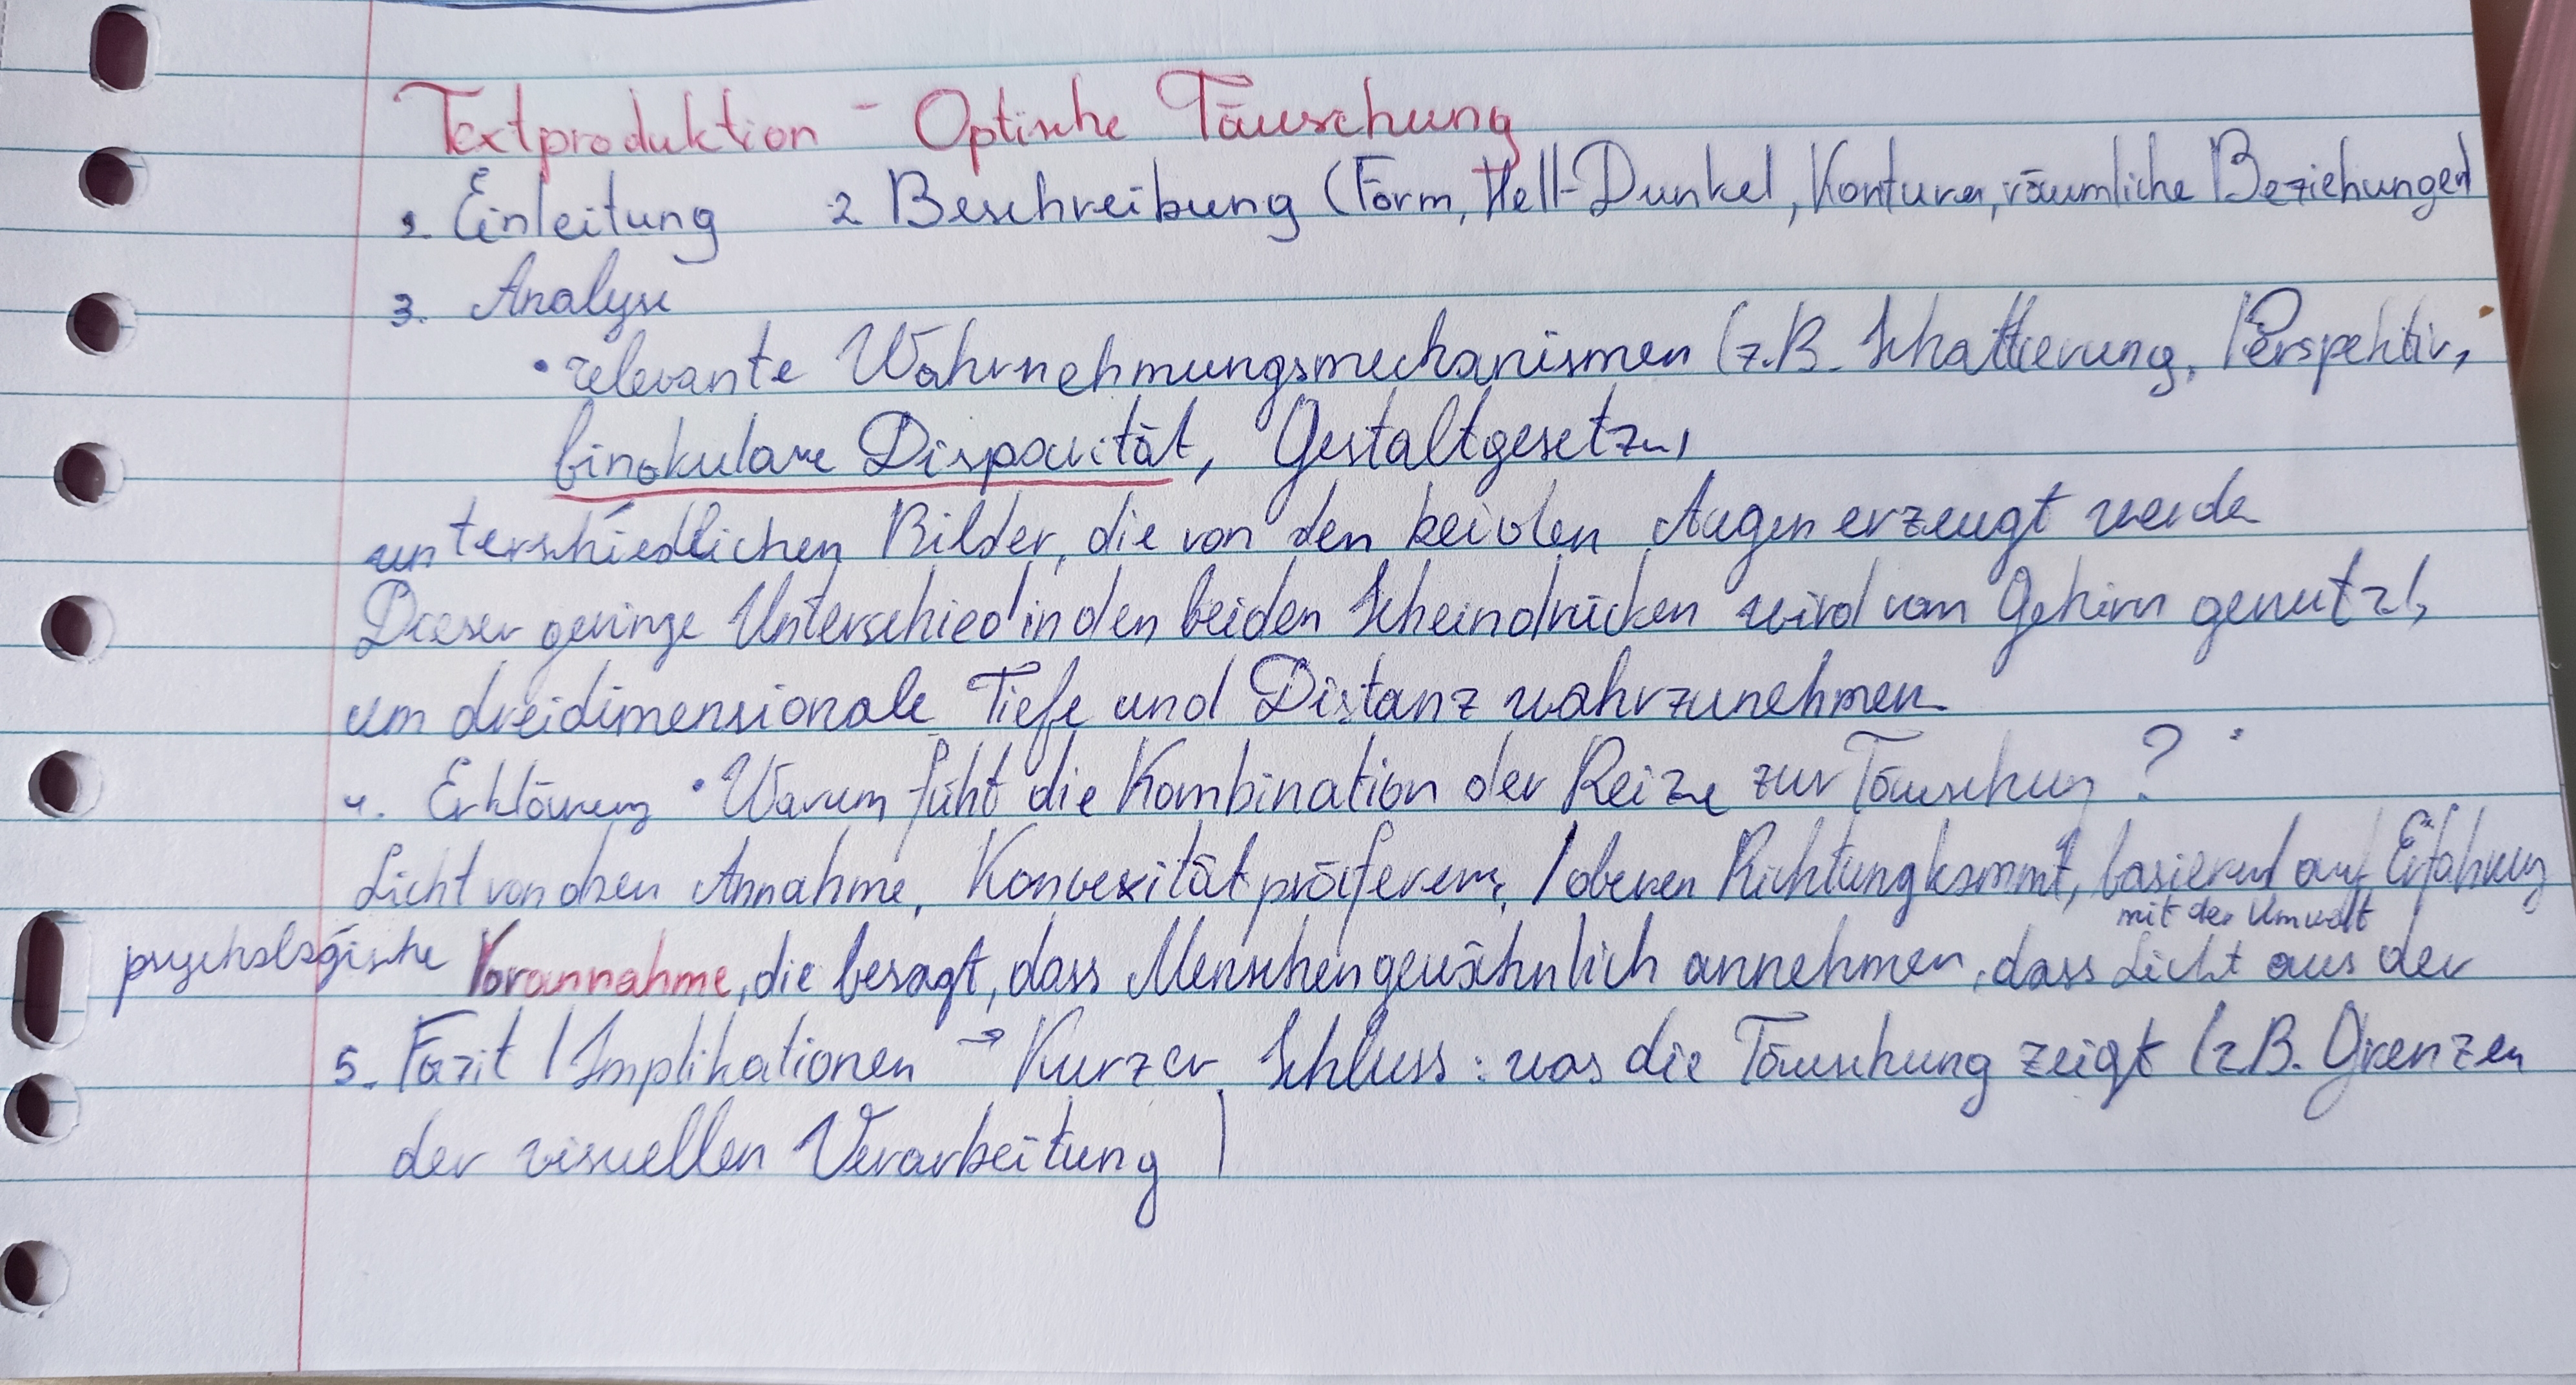 Textproduktion - Optische Täuschung
1. Einleitung 2 Beschreibung (Form, Hell-Dunkel, Konturen, räumliche Beziehungen)
3. Analyse
• relevante Wahrnehmungsmechanismen (z.B. Schattierung, Perspektiv,
binokulare Disparität, Gestaltgesetze,
unterschiedlichen Bilder, die von den beiden Augen erzeugt werde
Dieser geringe Unterschied in den beiden Scheindrücken wird vom Gehirn genutzt,
um dreidimensionale Tiefe und Distanz wahrzunehmen
4. Erklärung • Warum füht die Kombination der Reize zur Täuschung?
Licht von oben Annahme, Konvexitätpräferenz, / oberen Richtung kommt, basierend auf Erfahrung
mit der Umwelt
psychologische Vorannahme, die besagt, dass Menschen gewöhnlich annehmen, dass Licht aus der
5. Fazit / Implikationen → Kurzer Schluss: was die Täuschung zeigt (z.B. Grenzen
der visuellen Verarbeitung )